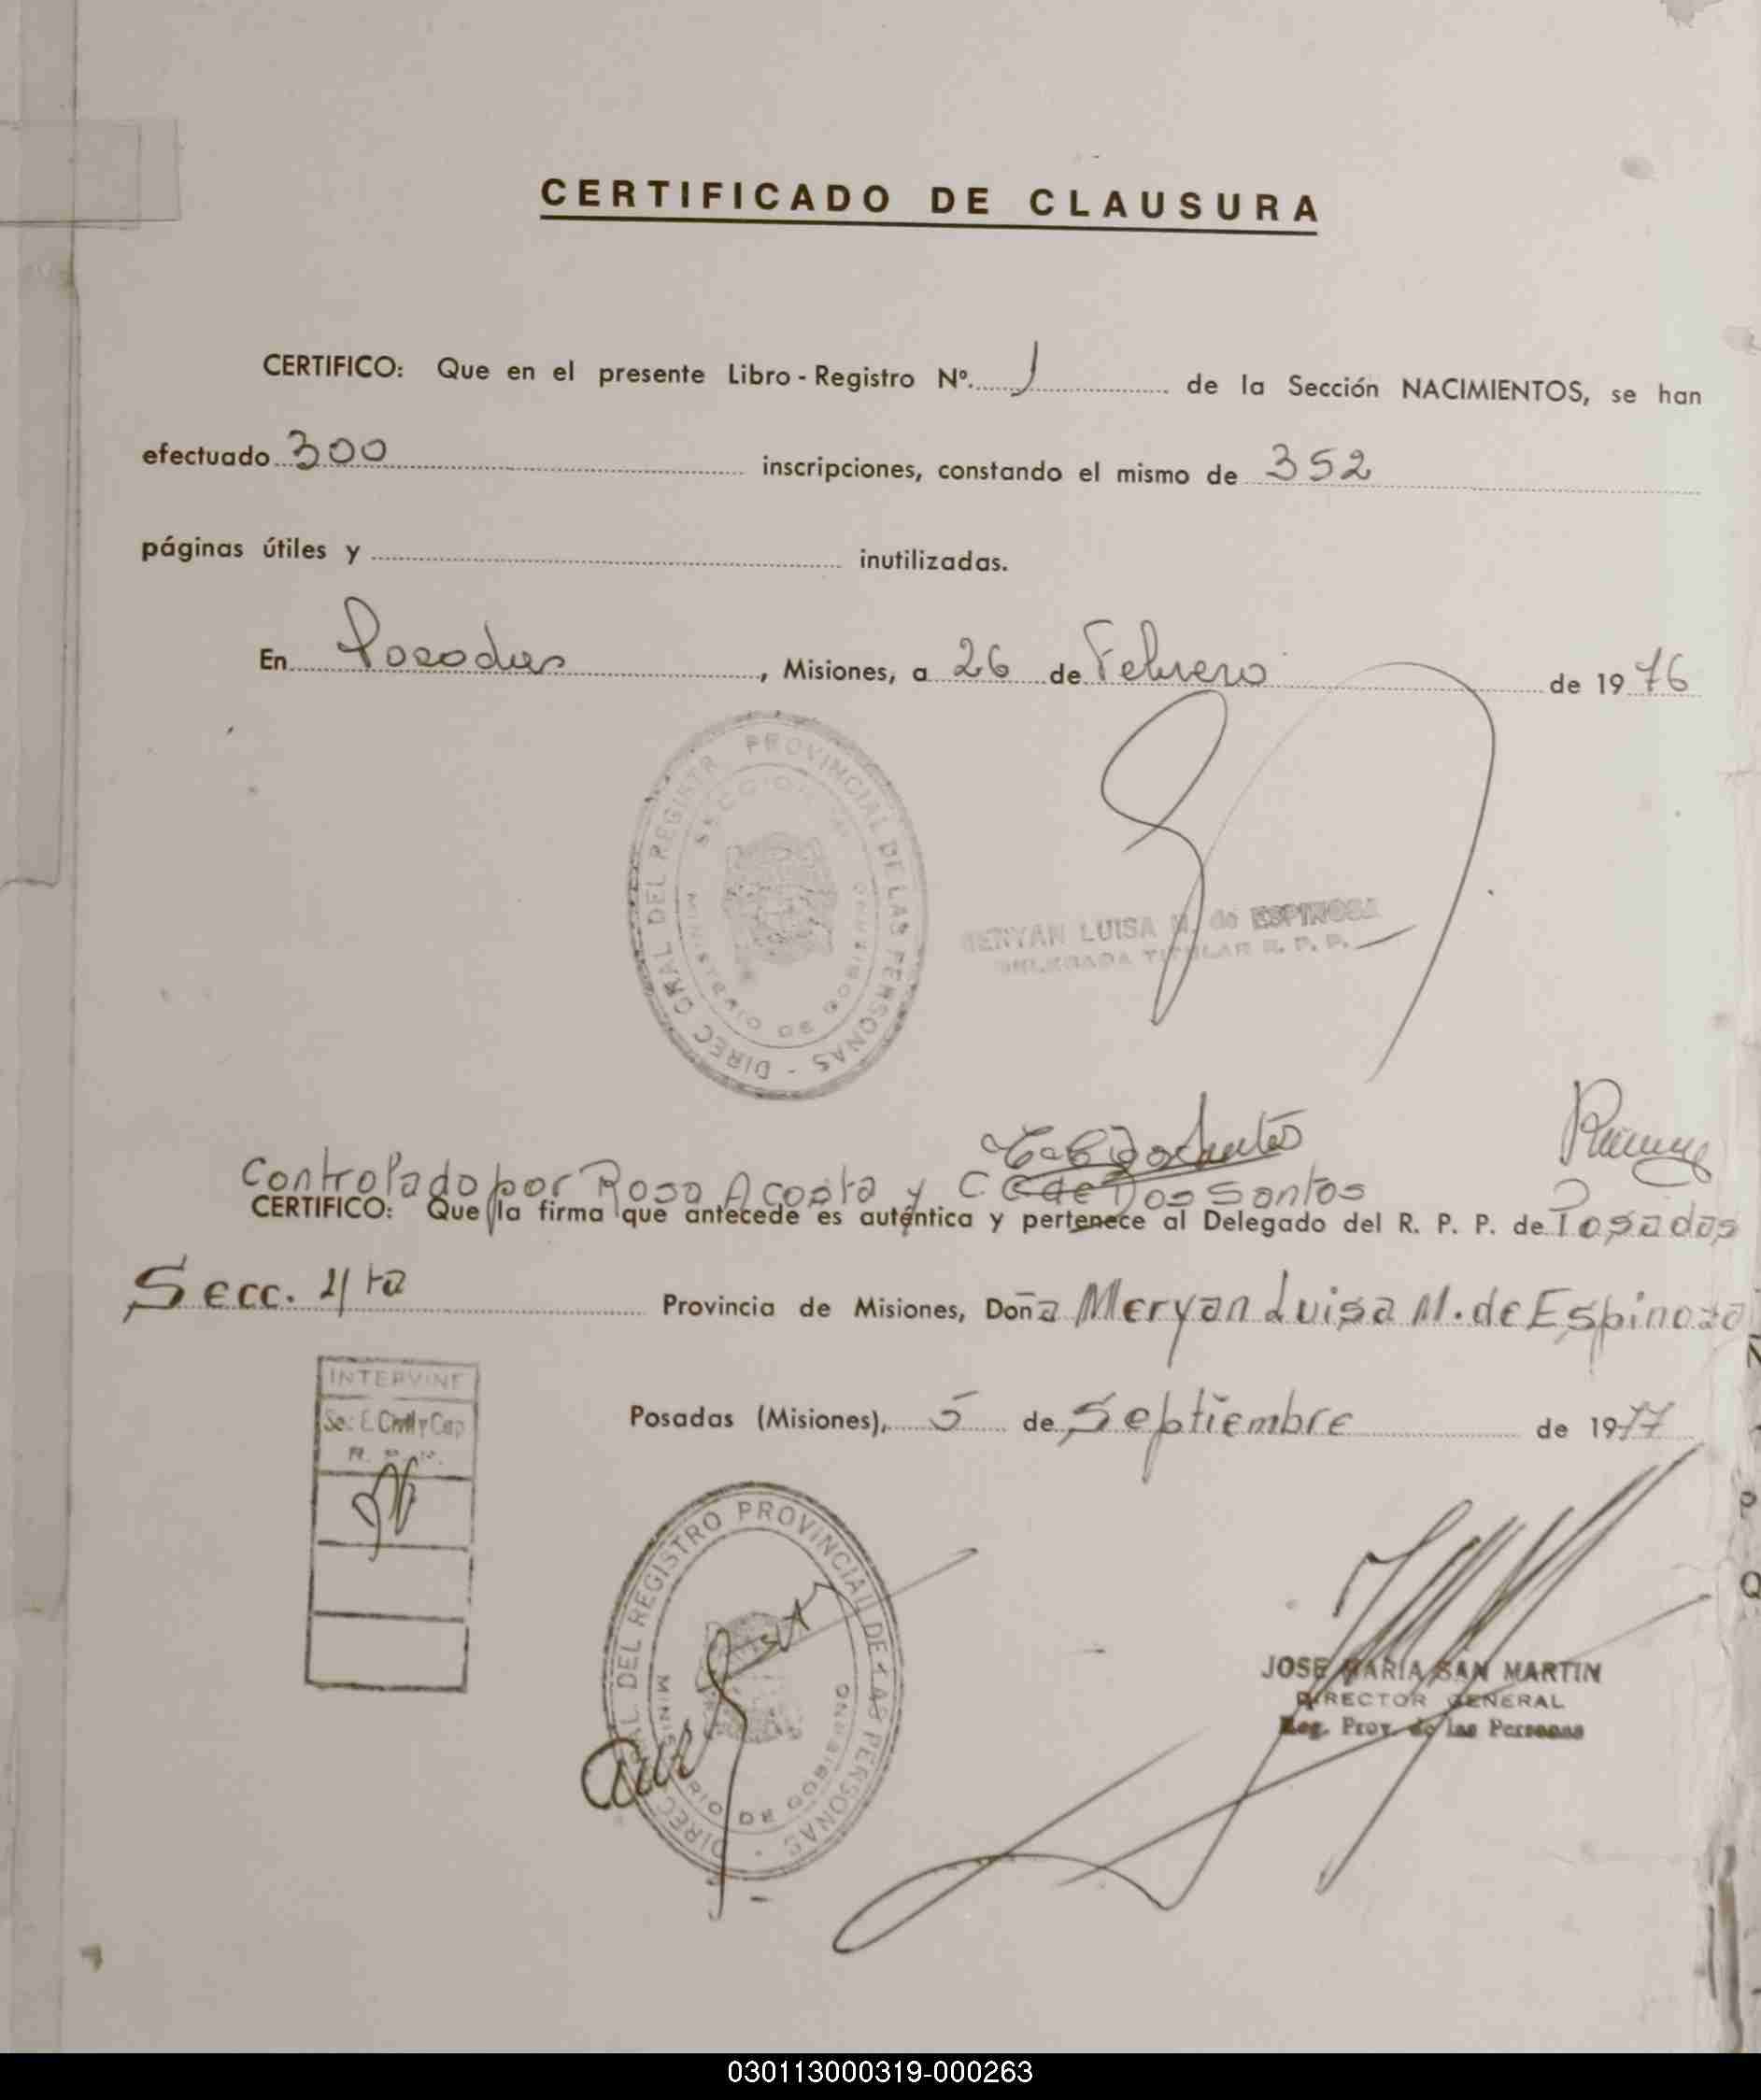 CERTIFICADO DE CLAUSURA
CERTIFICO: Que en el presente Libro-Registro Nº. 1 de la Sección NACIMIENTOS, se han
efectuado 300 inscripciones, constando el mismo de 352
páginas útiles y inutilizadas.
En Posadas, Misiones, a 26 de Febrero de 1976
DIREC GRAL DEL REGISTR PROVINCIAL DE LAS PERSONAS -
SECCION
MINISTERIO DE GOBIERNO
MERYAN LUISA M. de ESPINOSA
DELEGADA TITULAR R. P. P.
Controlado por Rosa Acosta y C de Dos Santos
CERTIFICO: Que la firma que antecede es auténtica y pertenece al Delegado del R. P. P. de Posadas
Secc. 4ta Provincia de Misiones, Doña Meryan Luisa M. de Espinoza
INTERVINE
R. P. P.
Posadas (Misiones), 5 de Septiembre de 1977
DIREC GRAL. DEL REGISTRO PROVINCIAL DE LAS PERSONAS
MINISTERIO DE GOBIERNO
JOSE MARIA SAN MARTIN
DIRECTOR GENERAL
Reg. Prov. de las Personas
030113000319-000263